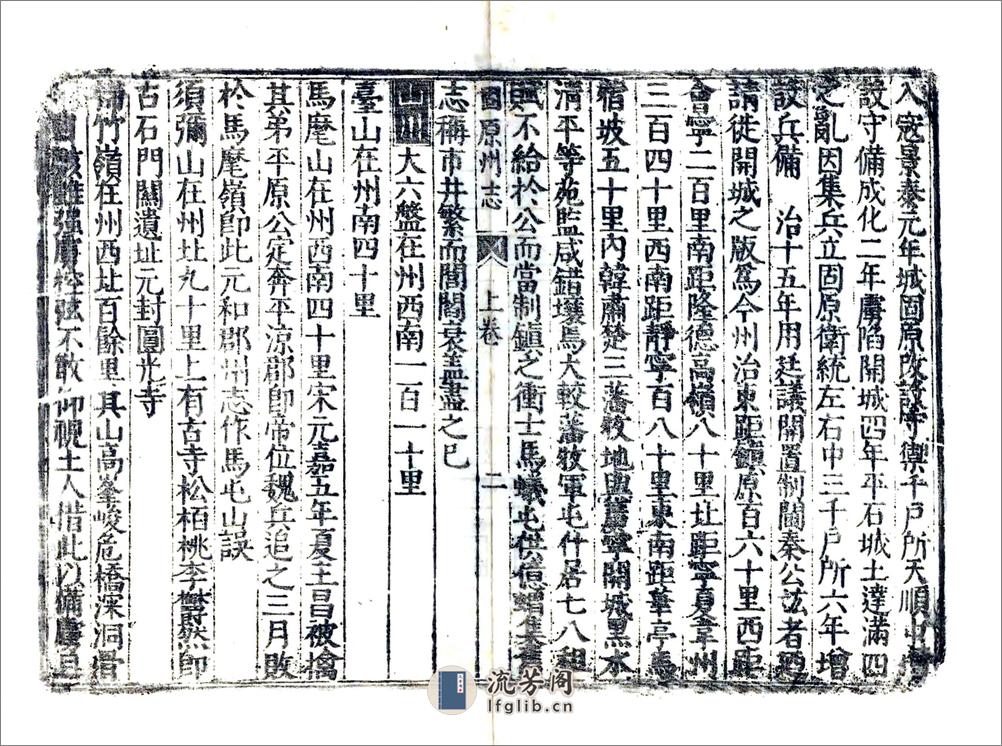 入寇景泰元年城固原改設守禦千戶所天順中增
設守備成化二年虜陷開城四年平石城土達滿四
之亂因集兵立固原衛統左右中三千戶所六年增
設兵備 治十五年用廷議開置制閫秦公竑者廼
請徙開城之版爲今州治東距鎮原百六十里西距
會寧二百里南距隆德高嶺八十里北距寧夏韋州
三百四十里西南距靜寧百八十里東南距華亭馬
宿坡五十里內韓肅楚三藩牧地與舊寧開城黑水
清平等苑監咸錯壤焉大較藩牧軍屯什居七八租
賦不給於公而當制鎮之衝士馬蟻屯供億蝟集舊
志稱市井繁而閭閻衰盖盡之已
固原州志 上卷 二
山川 大六盤在州西南一百一十里
臺山在州南四十里
馬麾山在州西南四十里宋元嘉五年夏主昌被擒
其弟平原公定奔平涼郡卽帝位魏兵追之三月敗
於馬麾嶺卽此元和郡州志作馬屯山誤
須彌山在州北九十里上有古寺松栢桃李欝然卽
古石門關遺址元封圓光寺
掃竹嶺在州西北百餘里其山高峯峻危橋深洞
雖强虜控弦不敢仰視土人借此以備虜旦
流芳阁
lfglib.cn